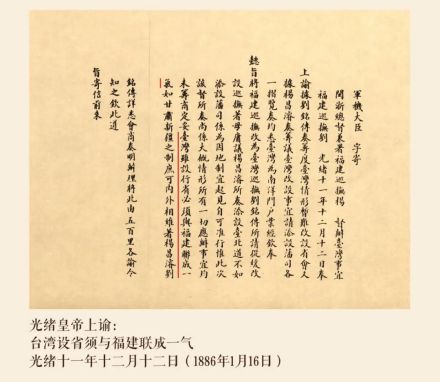 軍機大臣 字寄
閩浙總督兼署福建巡撫楊 督辦臺灣事宜
福建巡撫劉 光緒十一年十二月十二日奉
上諭據劉銘傳奏籌度臺灣情形暫難改設省會又
據楊昌濬奏籌議臺灣改設事宜請添設藩司各
一摺覽奏均悉臺灣為南洋門戶業經欽奉
懿旨將福建巡撫改為臺灣巡撫劉銘傳所請從緩改
設巡撫著毋庸議楊昌濬所奏添設臺北道不如
添設藩司係為因地制宜起見自可准行惟此次
該督所奏尚係大概情形所有一切應辦事宜均
未籌商定妥臺灣雖設行省必須與福建聯成一
氣如甘肅新疆之制庶可內外相維著楊昌濬劉
銘傳詳悉會商奏明辦理將此由五百里各諭令
知之欽此遵
旨寄信前來
光绪皇帝上谕：
台湾设省须与福建联成一气
光绪十一年十二月十二日（1886年1月16日）